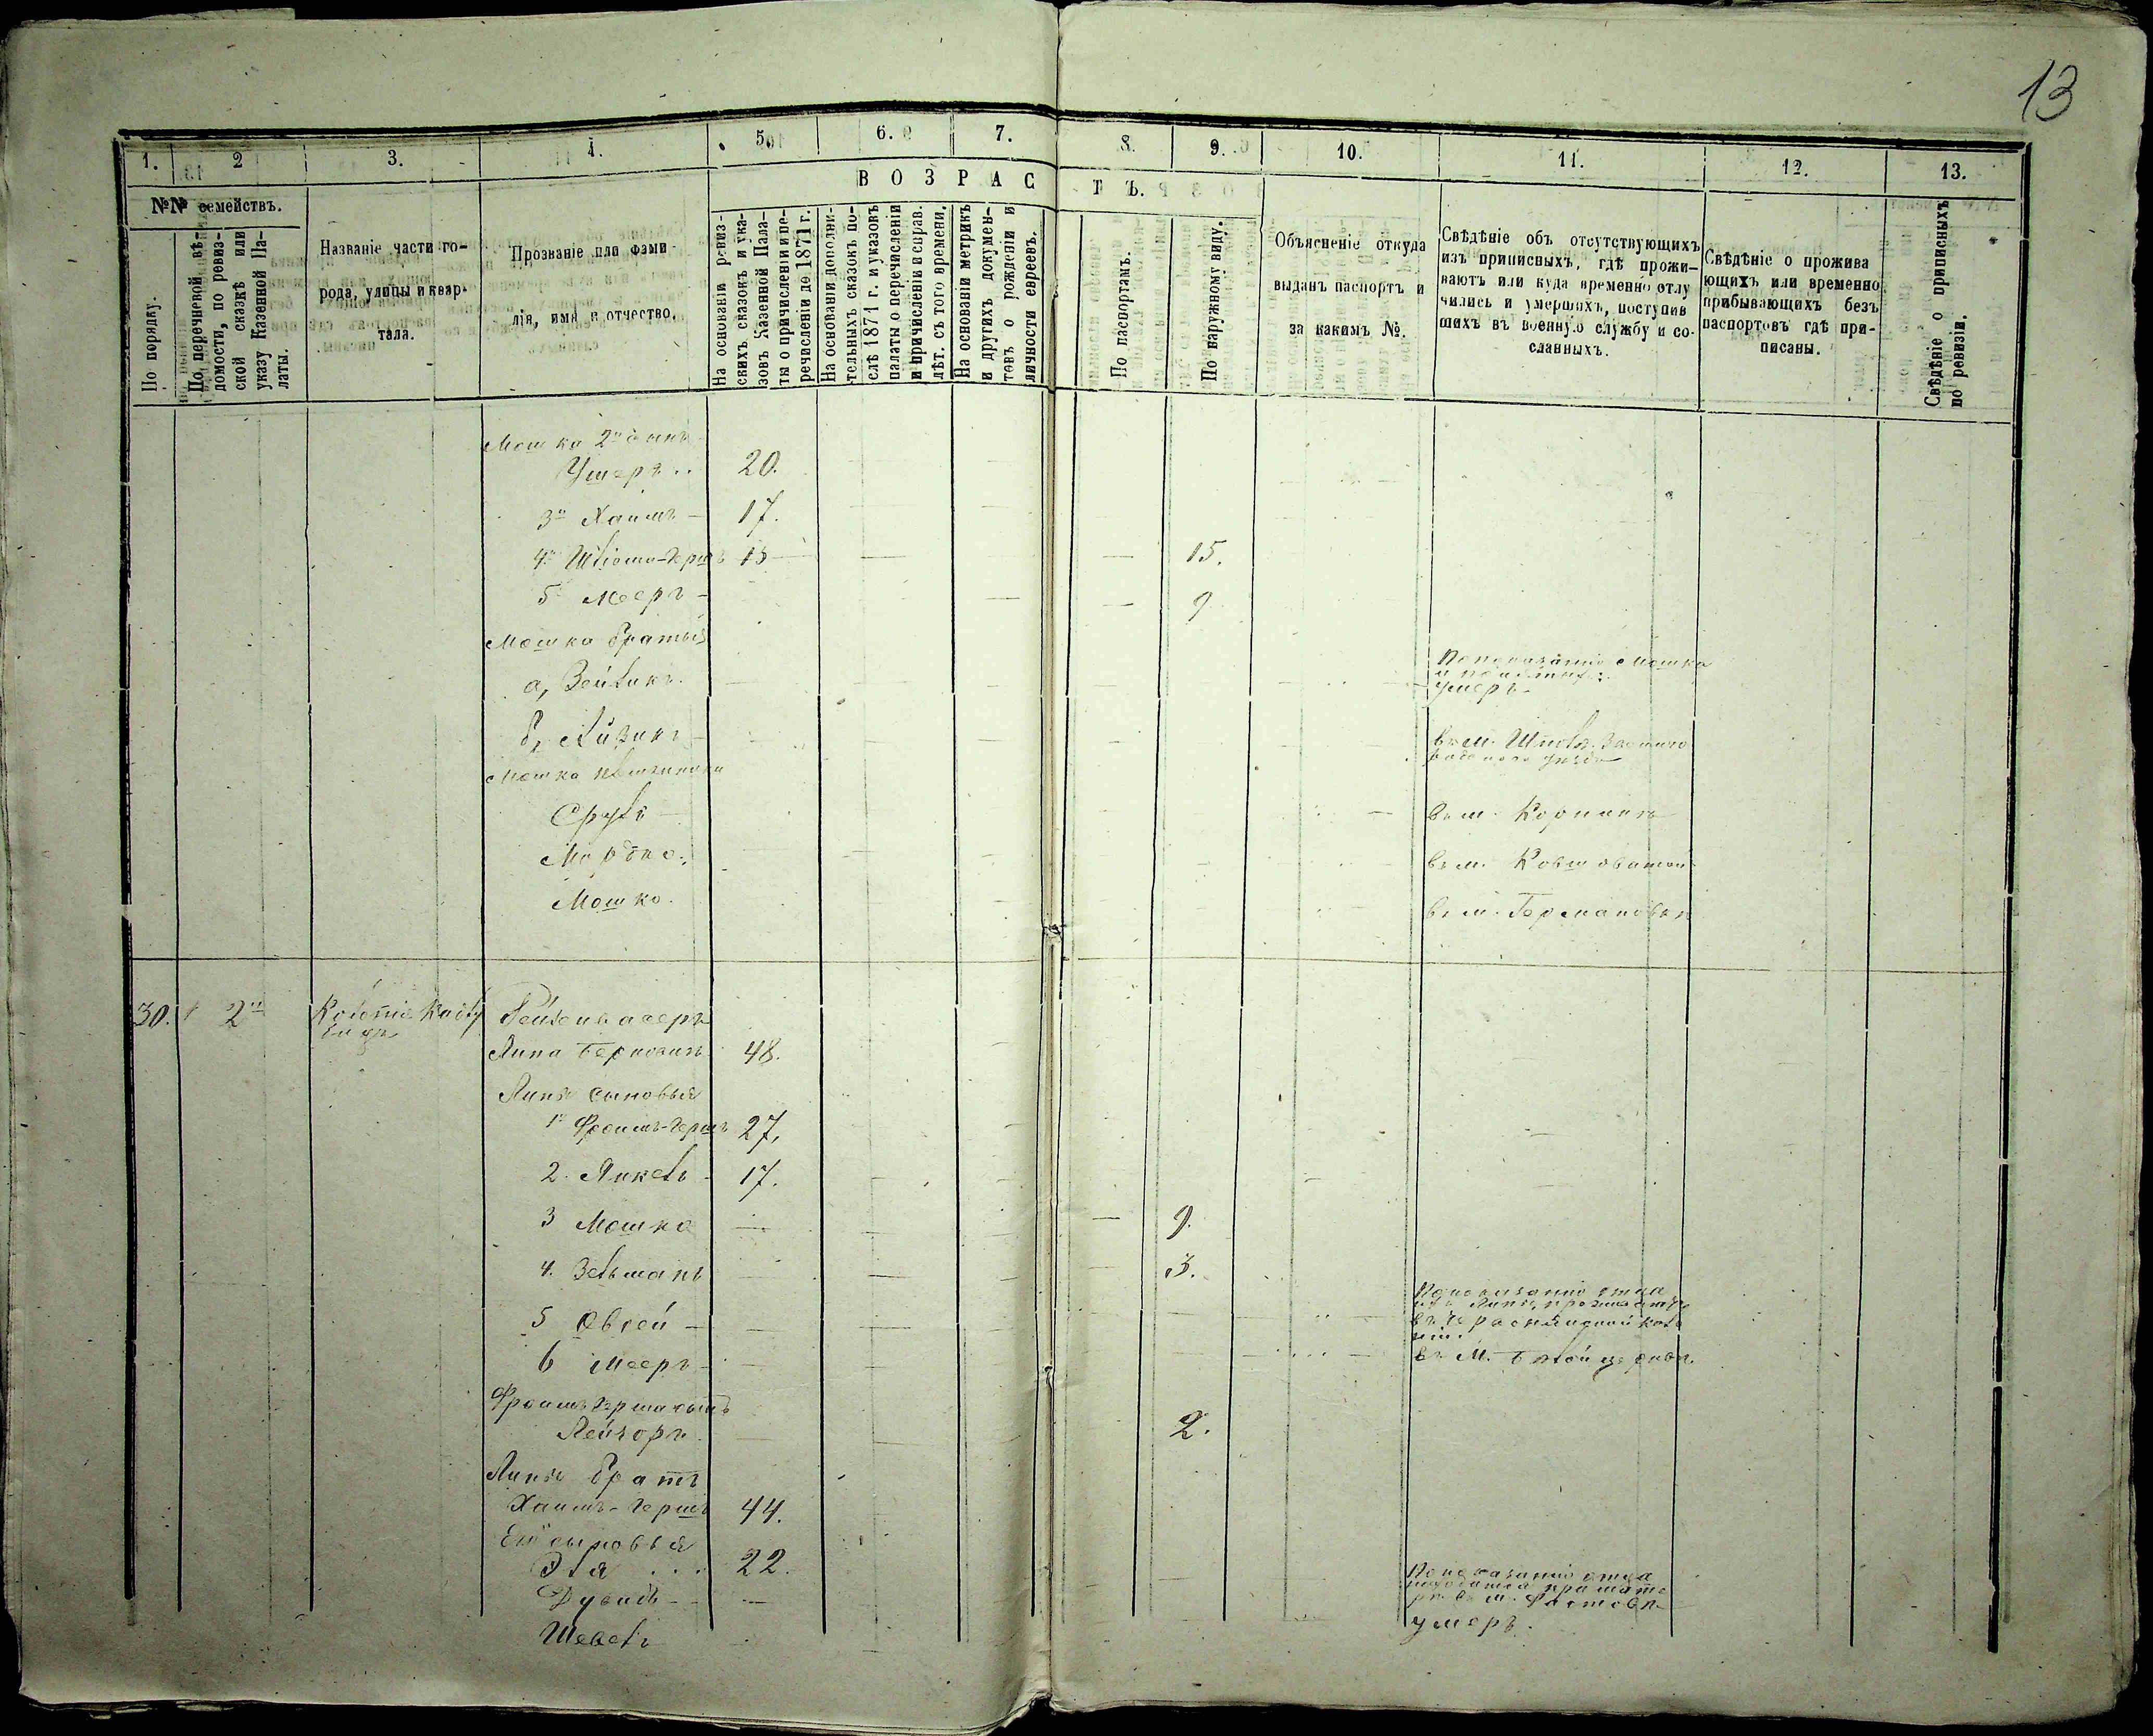 13
1. 2 3. 4. 5. 6. 7. 8. 9. 10. 11. 12. 13.
ВОЗРАСТЪ.
№№ семействъ.
По порядку.
По перечневой вѣ-
домости, по ревиз-
ской сказкѣ или
указу Казенной Па-
латы.
Названіе части го-
рода, улицы и квар-
тала.
Прозваніе или фами-
лія, имя и отчество.
На основаніи ревиз-
скихъ сказокъ и ука-
зовъ Казенной Пала-
ты о причисленіи и пе-
речисленіи до 1871 г.
На основаніи дополни-
тельныхъ сказокъ по-
слѣ 1871 г. и указовъ
палаты о перечисленіи
и причисленіи и справ.
лѣт. съ того времени.
На основаніи метрикъ
и другихъ докумен-
товъ о рожденіи и
личности евреевъ.
По паспортамъ.
По наружному виду.
Объясненіе откуда
выданъ паспортъ и
за какимъ №.
Свѣдѣніе объ отсутствующихъ
изъ приписныхъ, гдѣ прожи-
ваютъ или куда временно отлу
чились и умершихъ, поступив
шихъ въ военную службу и со-
сланныхъ.
Свѣдѣніе о прожива
ющихъ или временно
прибывающихъ безъ
паспортовъ гдѣ при-
писаны.
Свѣдѣніе о приписныхъ
по ревизіи.
Мошка 2й сынъ
Ушеръ .. 20.
3й Хаимъ - 17.
4й Шлiомо-Гершъ 15 15.
5й Мееръ - 9
Мошка братья
а, Зейликъ.
По показанію Мошка
умеръ -
б, Айзикъ -
въ м. Шпола Звениго
родскаго уѣзда
Мошка племянники
Сруль въ м. Корнинъ
Мордко. въ м. Ковшоватой
Мошко. въ м. Германовкѣ
30. 2й
Рейзенъ
Липа Берковичъ 48.
Липы сыновья
1й Фроимъ-Гершъ 27,
2. Янкель - 17.
3 Мошко 9.
4. Зельманъ 3.
5 Овсей -
По показанію отца
его Липы, проживаетъ
6 Мееръ - въ М. Бѣлой церкви.
Фроимъ Герша сынъ
Лейзоръ 2.
Липы братъ
Хаимъ-Гершъ 44.
Его сыновья
Эля ... 22.
Дувидъ -
По показанію отца
находится при мате
ри въ м. Фастовѣ
Шевель умеръ.